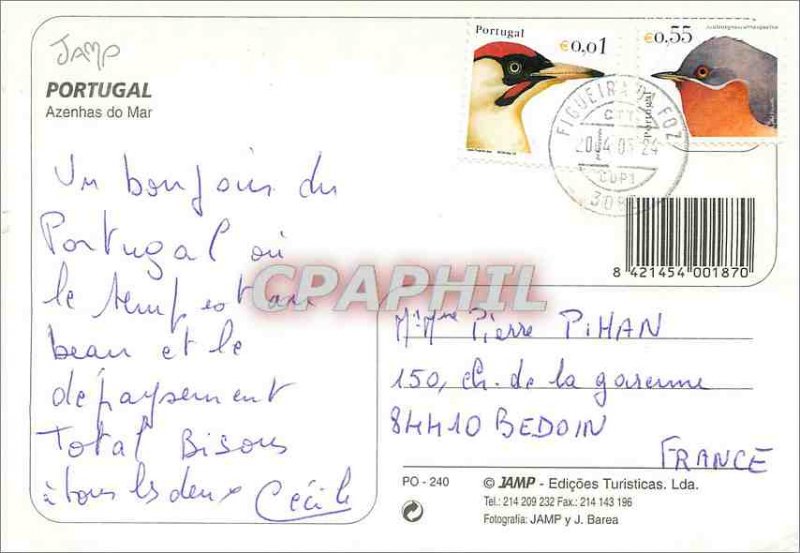 JAMP
PORTUGAL
Azenhas do Mar
Un bonjour du
Portugal où
le temps est au
beau et le
dépaysement
Total Bisous
à tous les deux Cécile
Portugal
€0,01
€0,55
Portugal
FIGUEIRA DA FOZ
CTT
3080
CPAPHIL
8 421454 001870
Mr Mme Pierre PIHAN
150, ch. de la garenne
84410 BEDOIN
FRANCE
PO - 240
© JAMP - Edições Turisticas. Lda.
Tel.: 214 209 232 Fax.: 214 143 196
Fotografia: JAMP y J. Barea